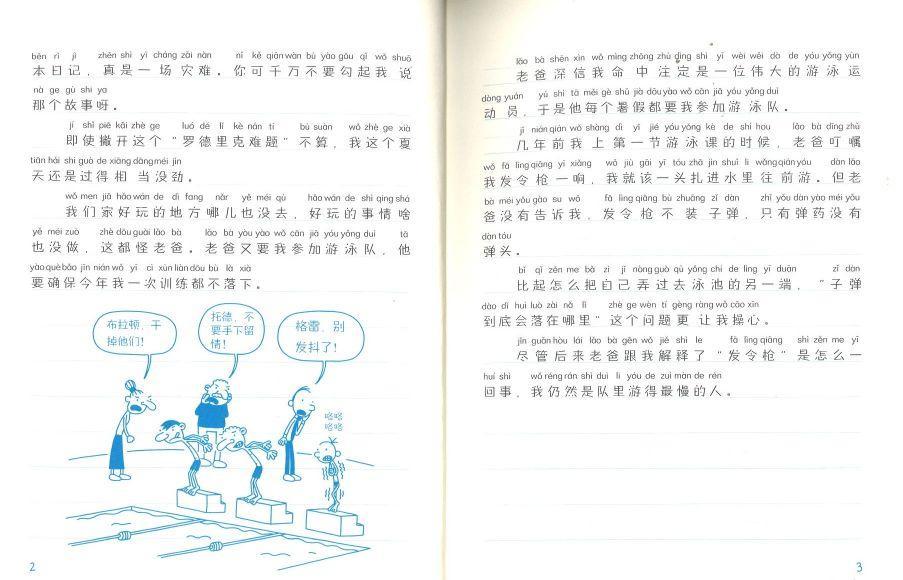 běn rì jì zhēn shì yì chǎng zāi nàn nǐ kě qiān wàn bú yào gōu qǐ wǒ shuō
本日记，真是一场灾难。你可千万不要勾起我说
nà ge gù shi ya
那个故事呀。
jí shǐ piē kāi zhè ge luó dé lǐ kè nán tí bú suàn wǒ zhè ge xià
即使撇开这个“罗德里克难题”不算，我这个夏
tiān hái shi guò de xiāng dāng méi jìn
天还是过得相当没劲。
wǒ men jiā hǎo wán de dì fang nǎr yě méi qù hǎo wán de shì qing shá
我们家好玩的地方哪儿也没去，好玩的事情啥
yě méi zuò zhè dōu guài lǎo bà lǎo bà yòu yào wǒ cān jiā yóu yǒng duì tā
也没做，这都怪老爸。老爸又要我参加游泳队，他
yào què bǎo jīn nián wǒ yí cì xùn liàn dōu bù là xià
要确保今年我一次训练都不落下。
布拉顿，干
掉他们！
托德，不
要手下留
情！
格雷，别
发抖了！
咯咯
咯咯
2
lǎo bà shēn xìn wǒ mìng zhōng zhù dìng shì yí wèi wěi dà de yóu yǒng yùn
老爸深信我命中注定是一位伟大的游泳运
dòng yuán yú shì tā měi gè shǔ jià dōu yào wǒ cān jiā yóu yǒng duì
动员，于是他每个暑假都要我参加游泳队。
jǐ nián qián wǒ shàng dì yī jié yóu yǒng kè de shí hou lǎo bà dīng zhǔ
几年前我上第一节游泳课的时候，老爸叮嘱
wǒ fā lìng qiāng yì xiǎng wǒ jiù gāi yì tóu zhā jìn shuǐ lǐ wǎng qián yóu dàn lǎo
我发令枪一响，我就该一头扎进水里往前游。但老
bà méi yǒu gào su wǒ fā lìng qiāng bù zhuāng zǐ dàn zhǐ yǒu dàn yào méi yǒu
爸没有告诉我，发令枪不装子弹，只有弹药没有
dàn tóu
弹头。
bǐ qǐ zěn me bǎ zì jǐ nòng guò qù yǒng chí de lìng yì duān zǐ dàn
比起怎么把自己弄过去泳池的另一端，“子弹
dào dǐ huì luò zài nǎ lǐ zhè ge wèn tí gèng ràng wǒ cāo xīn
到底会落在哪里”这个问题更让我操心。
jǐn guǎn hòu lái lǎo bà gēn wǒ jiě shì le fā lìng qiāng shì zěn me yì
尽管后来老爸跟我解释了“发令枪”是怎么一
huí shì wǒ réng rán shì duì lǐ yóu de zuì màn de rén
回事，我仍然是队里游得最慢的人。
3